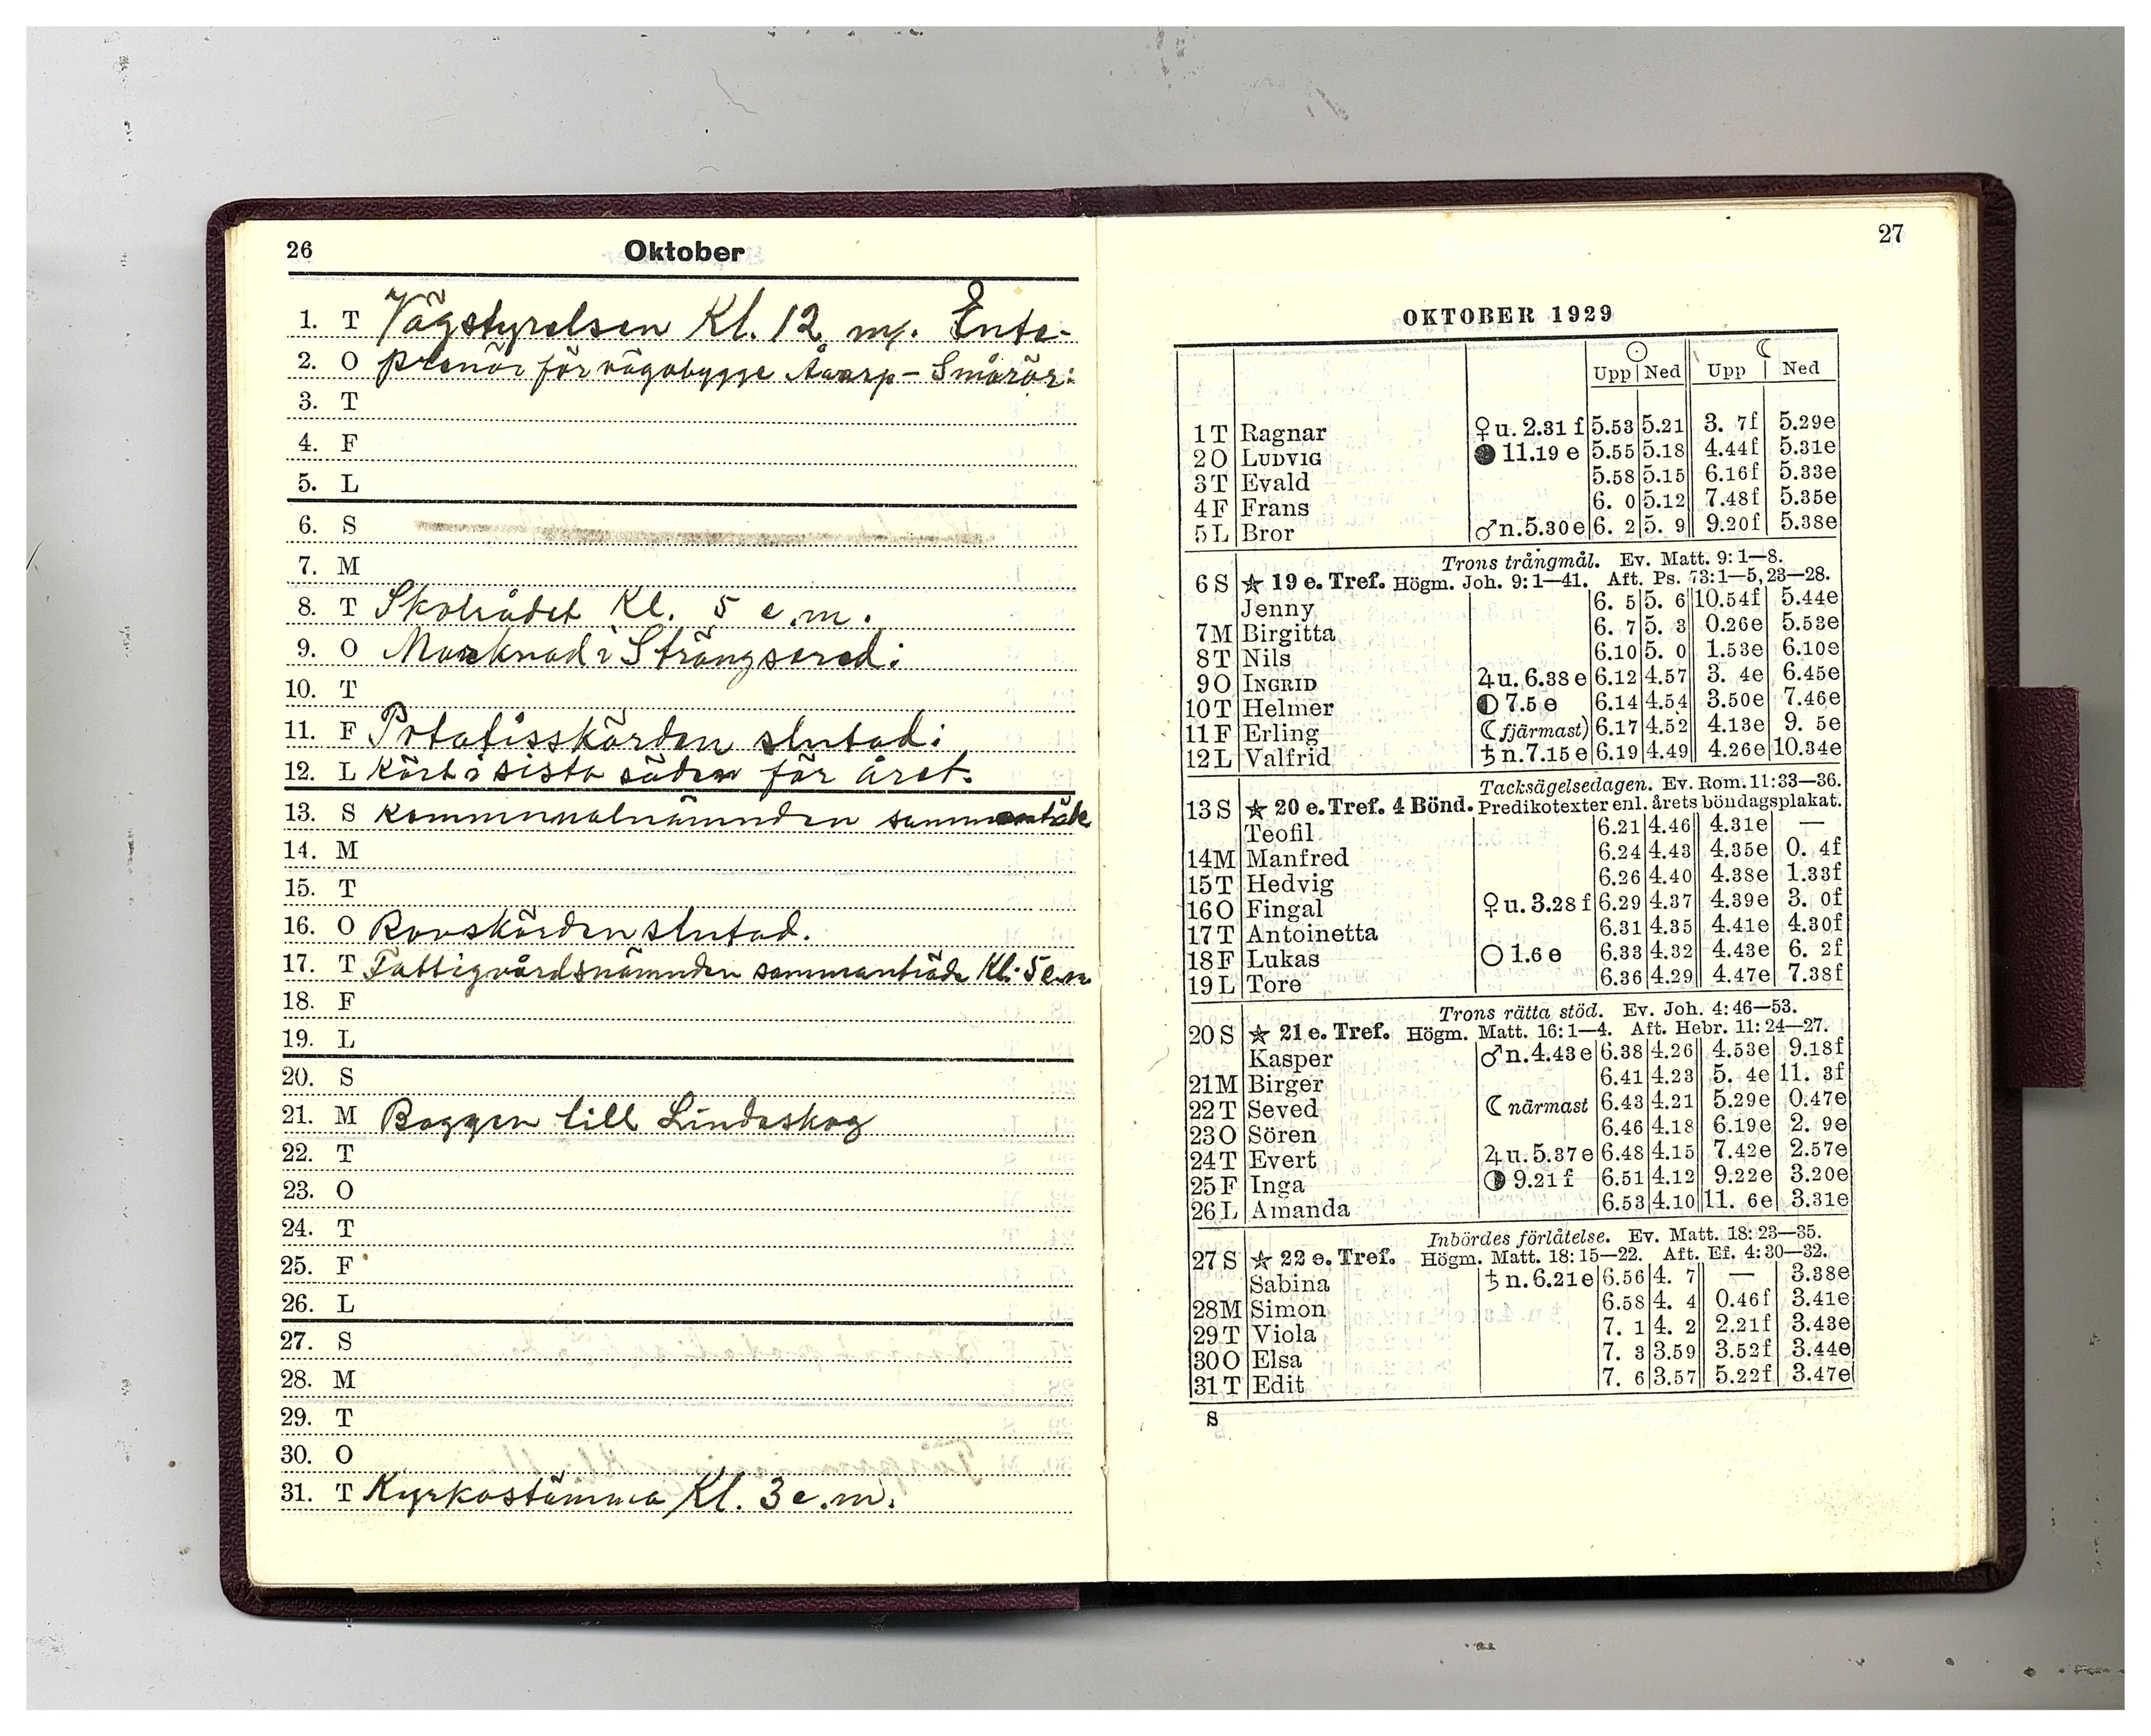 26
Oktober
1. T Vägstyrelsen Kl. 12 m. Ente-
2. O prenör för vägabygge Åvarp - Smårör:
3. T
4. F
5. L
6. S
7. M
8. T Skolrådet Kl. 5 e.m.
9. O Marknad i Strängsered:
10. T
11. F Potatisskörden slutad:
12. L Kört i sista säden för året.
13. S Kommunalnämnden sammanträde
14. M
15. T
16. O Rovskörden slutad.
17. T Fattigvårdsnämnden sammanträde Kl. 5 e.m
18. F
19. L
20. S
21. M Baggen till Lindaskog
22. T
23. O
24. T
25. F
26. L
27. S
28. M
29. T
30. O
31. T Kyrkostämma Kl. 3 e.m.
27
OKTOBER 1929
☉ ☾
Upp Ned Upp Ned
1 T Ragnar ♀ u. 2.31 f 5.53 5.21 3. 7f 5.29e
2 O LUDVIG ● 11.19 e 5.55 5.18 4.44f 5.31e
3 T Evald 5.58 5.15 6.16f 5.33e
4 F Frans 6. 0 5.12 7.48f 5.35e
5 L Bror ♂ n. 5.30 e 6. 2 5. 9 9.20f 5.38e
Trons trångmål. Ev. Matt. 9: 1—8.
6 S ☆ 19 e. Tref. Högm. Joh. 9: 1—41. Aft. Ps. 73: 1—5, 23—28.
Jenny 6. 5 5. 6 10.54f 5.44e
7 M Birgitta 6. 7 5. 3 0.26e 5.53e
8 T Nils 6.10 5. 0 1.53e 6.10e
9 O INGRID ♃ u. 6.38 e 6.12 4.57 3. 4e 6.45e
10 T Helmer ◐ 7.5 e 6.14 4.54 3.50e 7.46e
11 F Erling ☾ fjärmast) 6.17 4.52 4.13e 9. 5e
12 L Valfrid ♄ n. 7.15 e 6.19 4.49 4.26e 10.34e
Tacksägelsedagen. Ev. Rom. 11: 33—36.
13 S ☆ 20 e. Tref. 4 Bönd. Predikotexter enl. årets böndagsplakat.
Teofil 6.21 4.46 4.31e —
14 M Manfred 6.24 4.43 4.35e 0. 4f
15 T Hedvig 6.26 4.40 4.38e 1.33f
16 O Fingal ♀ u. 3.28 f 6.29 4.37 4.39e 3. 0f
17 T Antoinetta 6.31 4.35 4.41e 4.30f
18 F Lukas ○ 1.6 e 6.33 4.32 4.43e 6. 2f
19 L Tore 6.36 4.29 4.47e 7.38f
Trons rätta stöd. Ev. Joh. 4: 46—53.
20 S ☆ 21 e. Tref. Högm. Matt. 16: 1—4. Aft. Hebr. 11: 24—27.
Kasper ♂ n. 4.43 e 6.38 4.26 4.53e 9.18f
21 M Birger 6.41 4.23 5. 4e 11. 3f
22 T Seved ☾ närmast 6.43 4.21 5.29e 0.47e
23 O Sören 6.46 4.18 6.19e 2. 9e
24 T Evert ♃ u. 5.37 e 6.48 4.15 7.42e 2.57e
25 F Inga ◑ 9.21 f 6.51 4.12 9.22e 3.20e
26 L Amanda 6.53 4.10 11. 6e 3.31e
Inbördes förlåtelse. Ev. Matt. 18: 23—35.
27 S ☆ 22 e. Tref. Högm. Matt. 18: 15—22. Aft. Ef. 4: 30—32.
Sabina ♄ n. 6.21 e 6.56 4. 7 — 3.38e
28 M Simon 6.58 4. 4 0.46f 3.41e
29 T Viola 7. 1 4. 2 2.21f 3.43e
30 O Elsa 7. 3 3.59 3.52f 3.44e
31 T Edit 7. 6 3.57 5.22f 3.47e
S